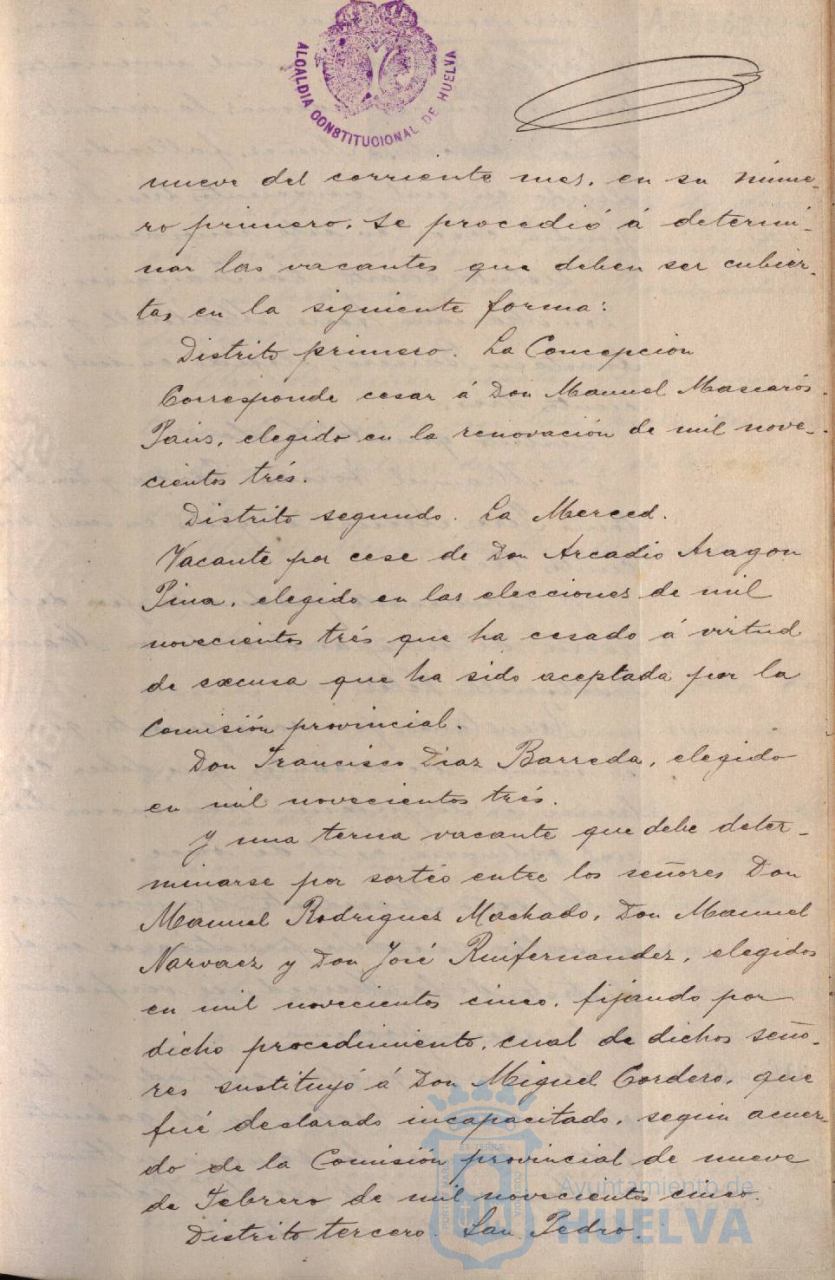 ALCALDIA CONSTITUCIONAL DE HUELVA
nueve del corriente mes, en su núme-
ro primero, se procedió á determi-
nar las vacantes que deben ser cubier-
tas en la siguiente forma:
Distrito primero. La Concepcion
Corresponde cesar á Don Manuel Mascarós
, elegido en la renovación de mil nove-
cientos trés.
Distrito segundo. La Merced.
Vacante por cese de Don Arcadio Aragon
Pina, elegido en las elecciones de mil
novecientos trés que ha cesado á virtud
de excusa que ha sido aceptada por la
Comisión provincial.
Don Francisco Diaz Barreda, elegido
en mil novecientos trés.
Y una terna vacante que debe deter-
minarse por sortéo entre los señores Don
Manuel Rodriguez Machado, Don Manuel
Narvaez y Don José Ruifernandez, elegidos
en mil novecientos cinco, fijando por
dicho procedimiento, cual de dichos seño-
res sustituyó á Don Miguel Cordero, que
fué declarado incapacitado, segun acuer-
do de la Comisión provincial de nueve
de Febrero de mil novecientos cinco.
Distrito tercero. San Pedro.
Ayuntamiento de
HUELVA